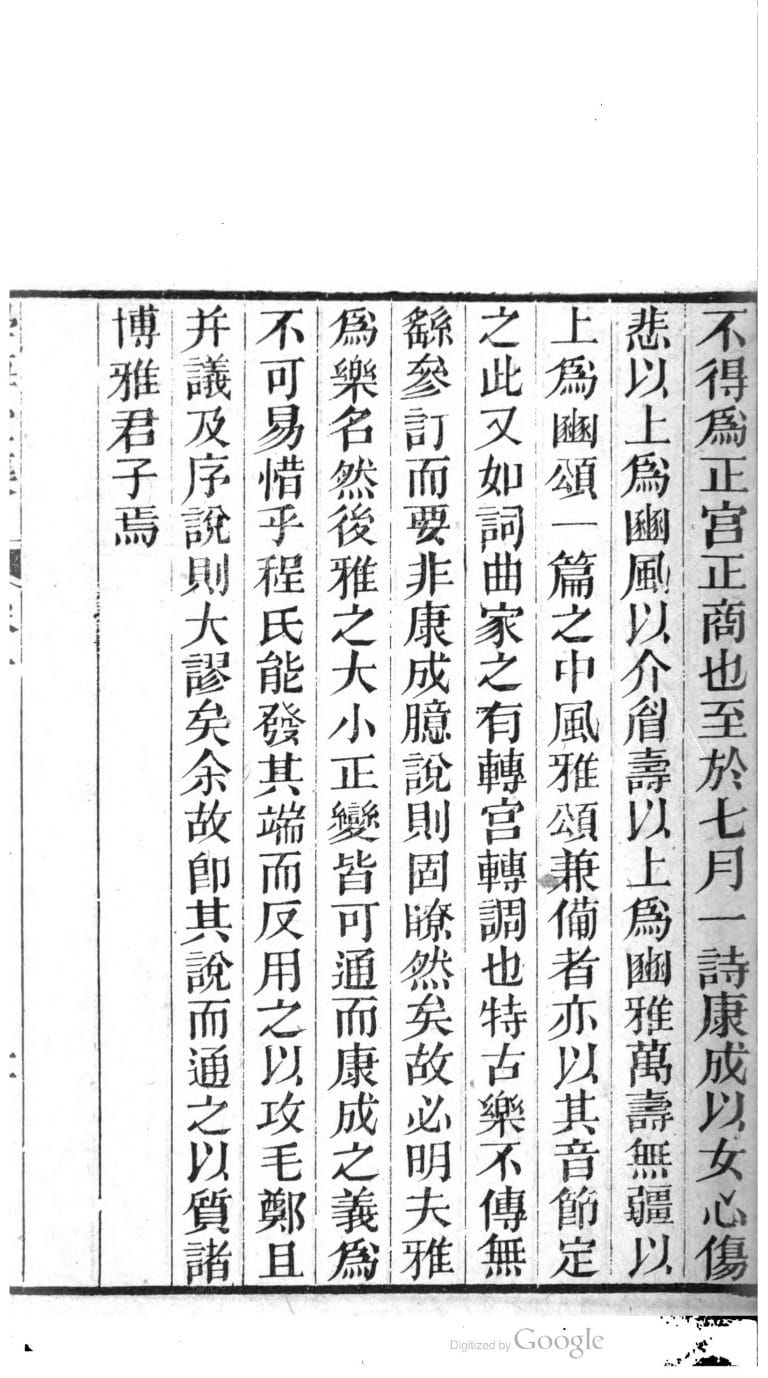 不得爲正宮正商也至於七月一詩康成以女心傷
悲以上爲豳風以介眉壽以上爲豳雅萬壽無疆以
上爲豳頌一篇之中風雅頌兼備者亦以其音節定
之此又如詞曲家之有轉宮轉調也特古樂不傳無
繇參訂而要非康成臆說則固瞭然矣故必明夫雅
爲樂名然後雅之大小正變皆可通而康成之義爲
不可易惜乎程氏能發其端而反用之以攻毛鄭且
并議及序說則大謬矣余故卽其說而通之以質諸
博雅君子焉
Digitized by Google